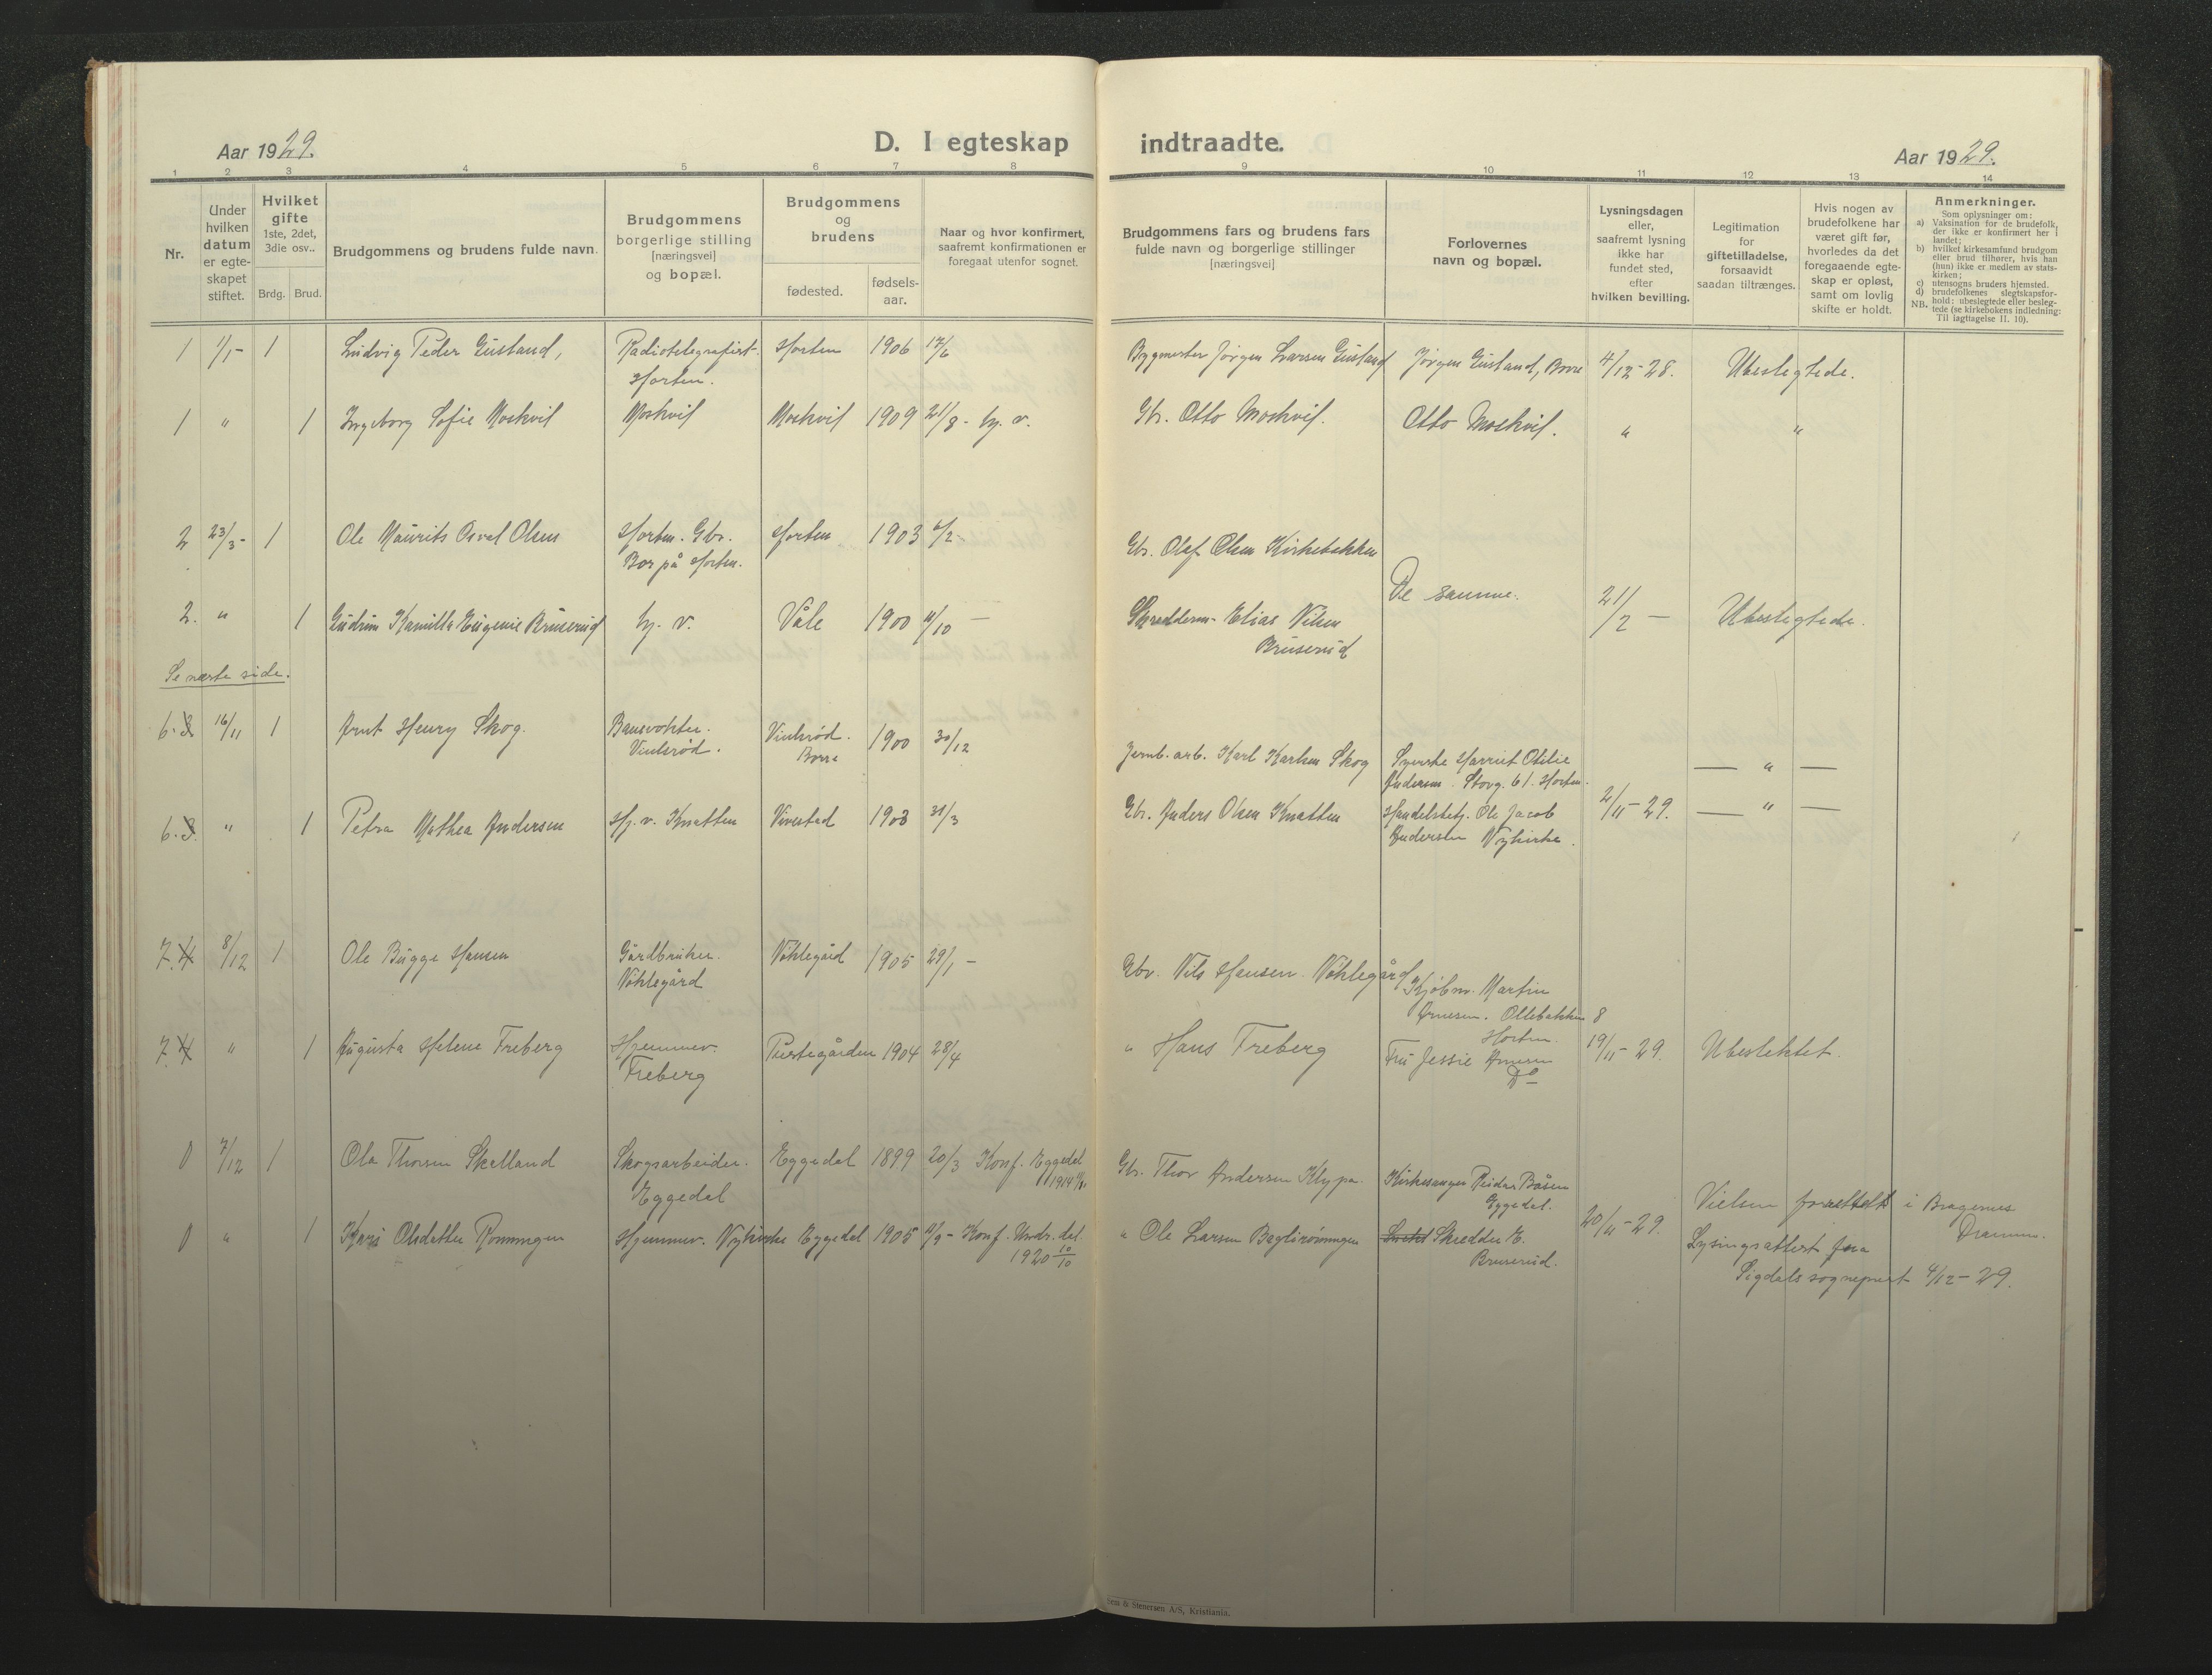 Aar 1929.
D. I egteskap indtraadte.
Aar 1929.
1 2 3 4 5 6 7 8 9 10 11 12 13 14
Nr.
Under hvilken datum er egte-skapet stiftet.
Hvilket gifte 1ste, 2det, 3die osv..
Brdg. Brud.
Brudgommens og brudens fulde navn.
Brudgommens borgerlige stilling [næringsvei] og bopæl.
Brudgommens og brudens
fødested. fødsels-aar.
Naar og hvor konfirmert, saafremt konfirmationen er foregaat utenfor sognet.
Brudgommens fars og brudens fars fulde navn og borgerlige stillinger [næringsvei]
Forlovernes navn og bopæl.
Lysningsdagen eller, saafremt lysning ikke har fundet sted, efter hvilken bevilling.
Legitimation for giftetilladelse, forsaavidt saadan tiltrænges.
Hvis nogen av brudefolkene har været gift før, hvorledes da det foregaaende egte-skap er opløst, samt om lovlig skifte er holdt.
Anmerkninger.
Som oplysninger om:
a) Vaksination for de brudefolk, der ikke er konfirmert her i landet;
b) hvilket kirkesamfund brudgom eller brud tilhører, hvis han (hun) ikke er medlem av stats-kirken;
c) utensogns bruders hjemsted.
d) brudefolkenes slegtskapsfor-hold: ubeslegtede eller besleg-tede (se kirkebokens indledning: Til iagttagelse II. 10).
NB.
1 1/1- 1 Ludvig Peder Gustand, Radiotelegrafist. Horten. Horten 1906 17/6 Bygmester Jørgen Larsen Gustand Jørgen Gustand, Borre 4/12-28. Ubeslegtede.
1 " 1 Ingeborg Sofie Moskvil Moskvil Moskvil 1909 21/8- hj. v. Gbr. Otto Moskvil. Otto Moskvil. " "
2 23/3- 1 Ole Maurits Osvel Olsen Horten. Gbr. Bor på Horten. Horten 1903 6/2- Gbr. Olaf Olsen Kirkebakken
De samme. 21/2 -
2. " 1 Gudrun Kamilla Eugenie Bruserud hj. v. Våle 1900 11/10 - Skredderm. Elias Nilsen Bruserud Ubeslegtede.
Se næste side.
6. 3 16/11 1 Arnt Henry Skog. Banevokter. Vinksrød. Vinksrød. Borre 1900 30/12 Jernb. arb. Karl Karlsen Skog Syerske Harriet Otilie Andersen. Storg. 61. Horten. — " —
6. 3. " 1 Petra Mathea Andersen Hj. v. Knatten Vivestad 1903 31/3 Gbr. Anders Olsen Knatten Handelsbetj. Ole Jacob Andersen Nykirke. 2/11-29. — " —
7. 4 8/12 1 Ole Bugge Hansen Gårdbruker. Nøklegård Nøklegård 1905 29/1 - Gbr. Nils Hansen. Nøklegård Kjøbm. Martin Arnesen. Ollebakken 8 Horten.
7. 4 " 1 Augusta Helene Freberg Hjemmev. Freberg Prestegården 1904 28/4 " Hans Freberg Fru Jessie Arnesen Do 19/11-29. Ubeslektet.
0 7/12 1 Ola Thorsen Skalland Skogsarbeider. Eggedal Eggedal 1899 20/3 Konf. Eggedal 1914 Gbr. Thor Andersen Klypa. Kirkesanger Reidar Båsen Eggedal.
0 " 1 Kari Olsdatter Rønningen Hjemmev. Nykirke Eggedal 1905 11/9- Konf. Undr. dal 1920 10/10 " Ole Larsen Beglirønningen Skredder E. Bruserud. 20/11-29. Vielsen forrettet i Bragenes Drammen.
Lysingsattest fra Sigdals sogneprest 4/12-29.
& Stenersen A/S, Kristiania.